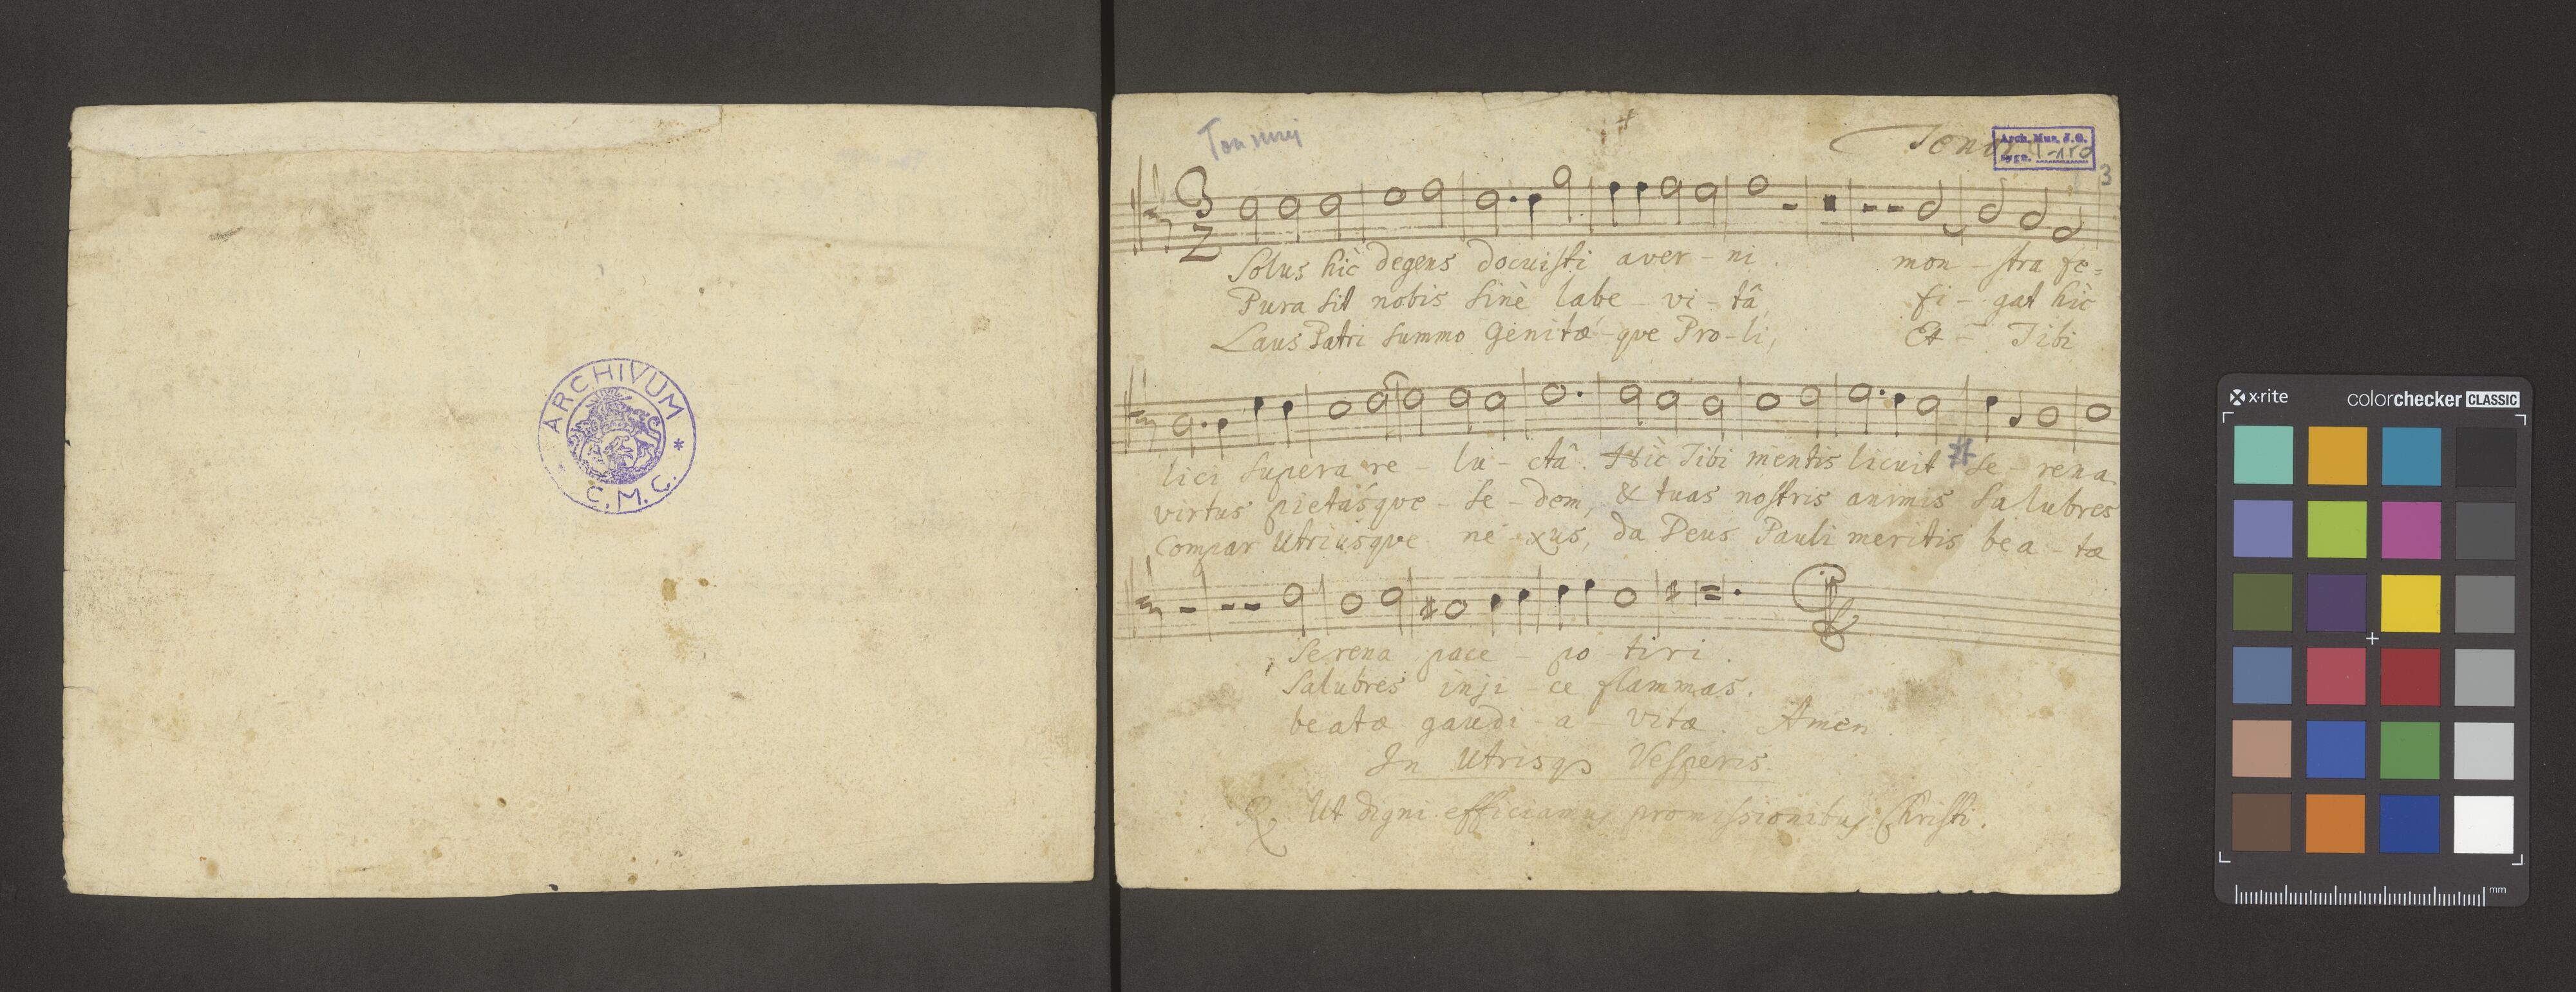 ARCHIVUM
C.M.C.
Tenor
Arch. Mus. J.G.
sygn.
3
Solus hìc degens docuisti aver-ni mon-stra fe=
Pura sit nobis sinè labe-vi-tâ, fi-gat hìc
Laus Patri summo Genitæ-que Pro-li, Et-Tibi
lici supera re-lu-ctâ. Hìc Tibi mentis licuit se-rena
virtus pietásque-se-dem, & tuas nostris animis salubres
compar Utriúsque ne-xus, da Deus Pauli meritis bea-tæ
Serena pace-po-tiri.
Salubres ìnji-ce flammas.
beatæ gaudi-a-vitæ. Amen.
In Utrisqz Vesperis.
℟ Ut digni efficiamus promissionibus Christi.
x-rite
colorchecker CLASSIC
mm